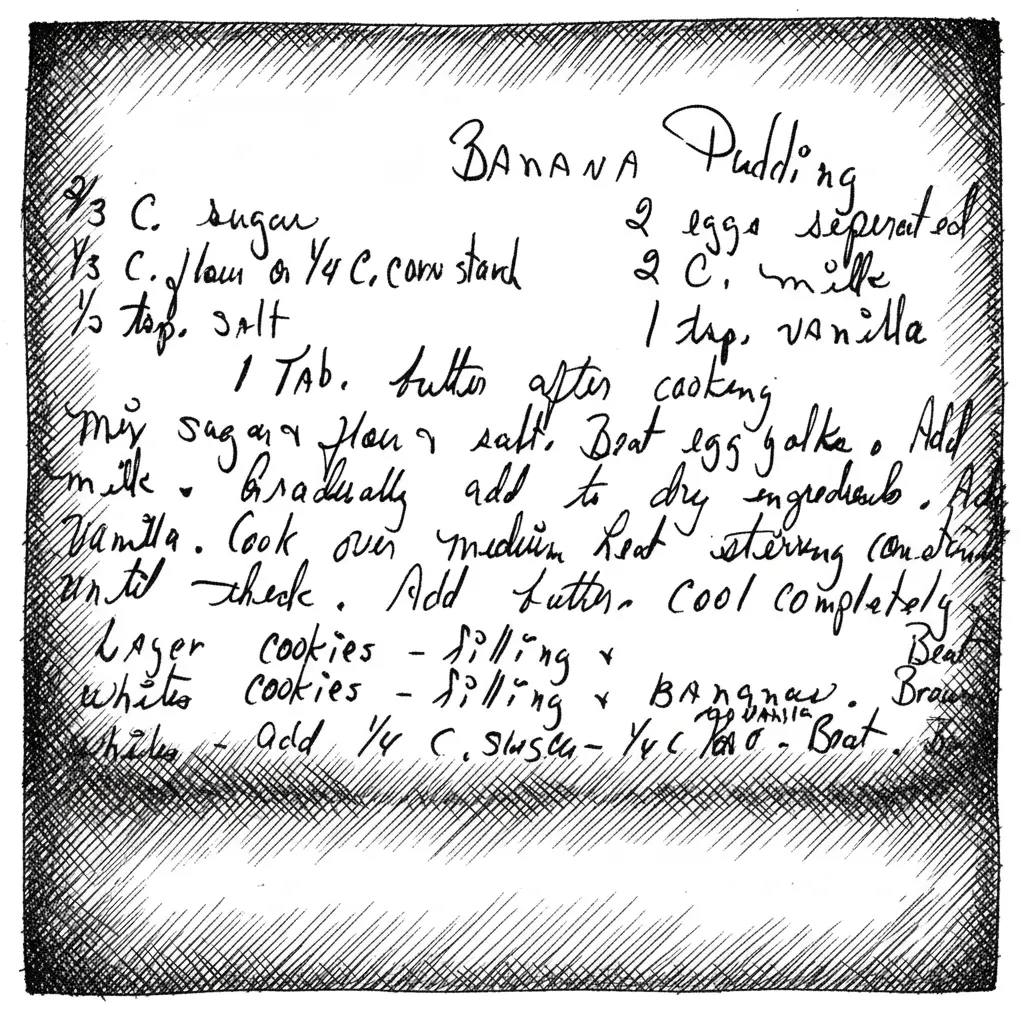 BANANA Pudding
2/3 C. sugar 2 eggs seperated
1/3 C. flour or 1/4 C. corn starch 2 C. milk
tsp. SAlt 1 tsp. vanilla
1 TAb. butter after cooking
Mix sugar & flour & salt. Beat egg yolks. Add
milk. Gradually add to dry ingredients. Add
Vanilla. Cook over medium heat stirring
until thick. Add butter. Cool completely
LAyer cookies - filling & Beat
whites cookies - filling & BAnanas. Brown
whites - add 1/4 C. sugar - 1/4 C VANillA - Beat.